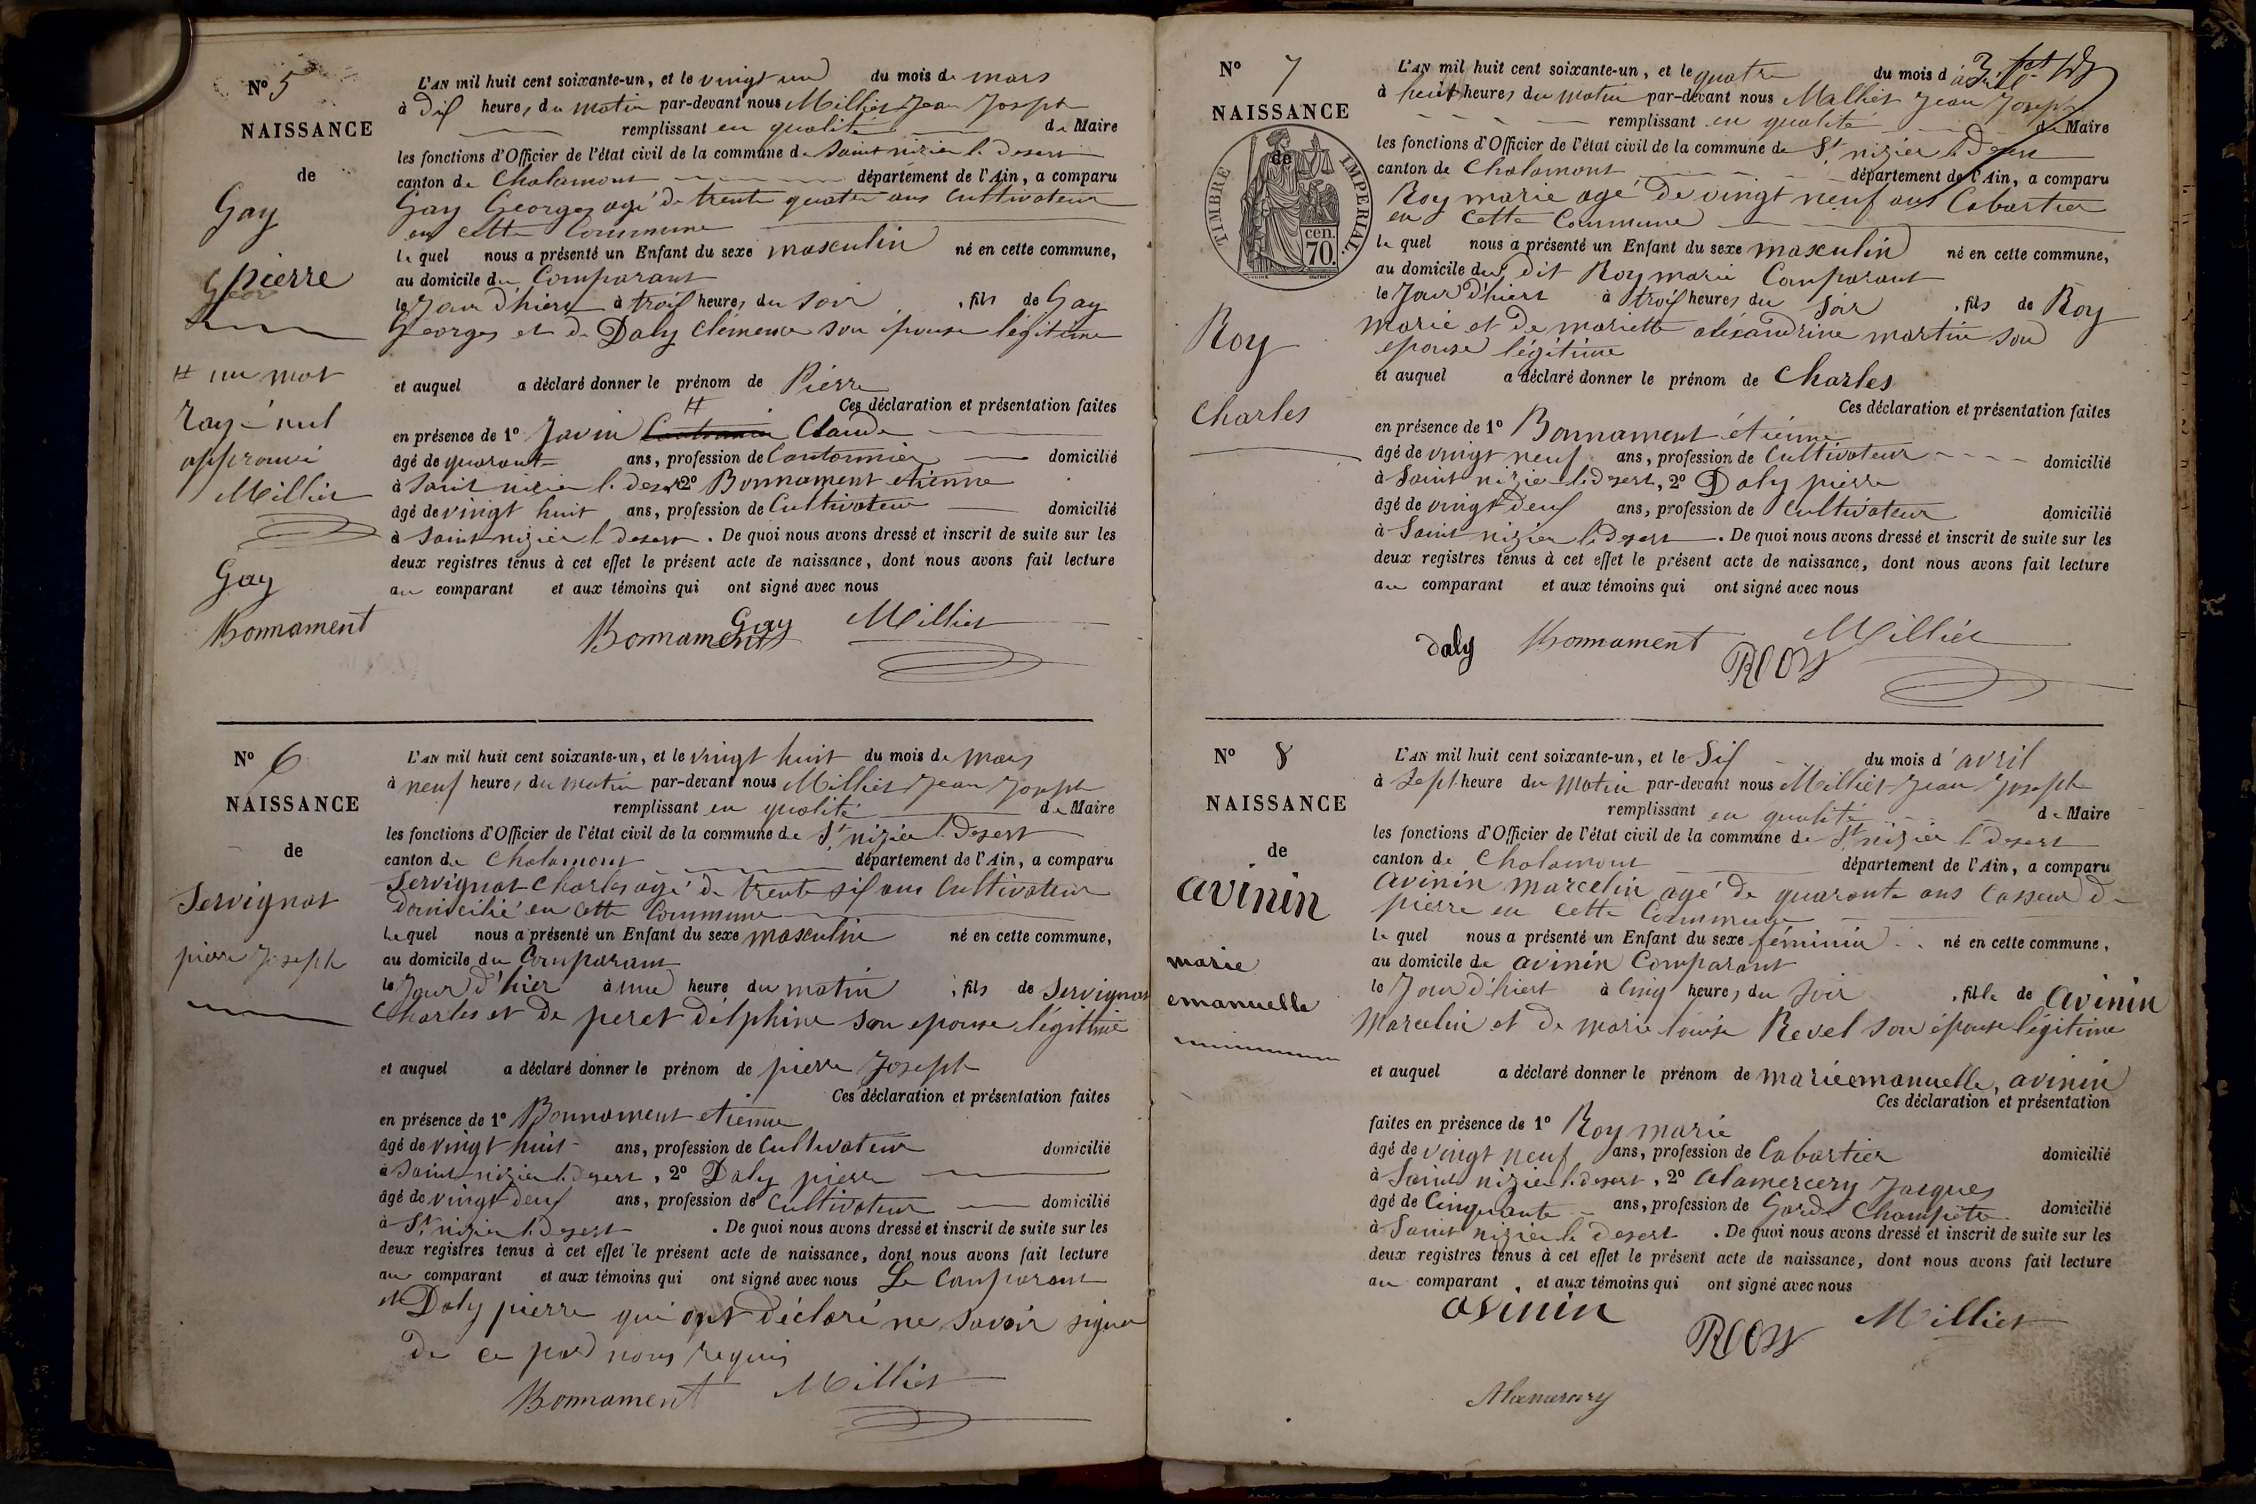 N° 5
NAISSANCE
de
Gay
pierre
# un mot
rayé nul
approuvé
Milliet
Gay
Bonnament
L'AN mil huit cent soixante-un, et le vingt un du mois de mars
à dix heures du matin par-devant nous Milliet Jean Joseph
remplissant en qualité de Maire
les fonctions d'Officier de l'état civil de la commune de Saint nizier le Desert
canton de Chalamont département de l'Ain, a comparu
Gay Georges agé de trente quatre ans Cultivateur
en cette Commune
le quel nous a présenté un Enfant du sexe masculin né en cette commune,
au domicile du Comparant
le Jour d'hiert à trois heures du soir , fils de Gay
Georges et de Daly Clémence son épouse légitime
et auquel a déclaré donner le prénom de Pierre
#
Ces déclaration et présentation faites
en présence de 1° Javin Claude
âgé de quarante ans, profession de Cantonnier domicilié
à Saint nizier le desert 2° Bonnament etienne
âgé de vingt huit ans, profession de Cultivateur domicilié
à Saint nizier le desert . De quoi nous avons dressé et inscrit de suite sur les
deux registres tenus à cet effet le présent acte de naissance, dont nous avons fait lecture
au comparant et aux témoins qui ont signé avec nous
Bonnament Gay Milliet
N° 6
NAISSANCE
de
Servignat
pierre Joseph
L'AN mil huit cent soixante-un, et le vingt huit du mois de mars
à neuf heures du matin par-devant nous Milliet Jean Joseph
remplissant en qualité de Maire
les fonctions d'Officier de l'état civil de la commune de St nizier le Desert
canton de Chalamont département de l'Ain, a comparu
Servignat Charles agé de trente six ans Cultivateur
Domicilié en cette Commune
le quel nous a présenté un Enfant du sexe masculin né en cette commune,
au domicile du Comparant
le Jour d'hier à une heure du matin , fils de Servignat
Charles et de peret délphine son epouse légitime
et auquel a déclaré donner le prénom de pierre Joseph
Ces déclaration et présentation faites
en présence de 1° Bonnament etienne
âgé de vingt huit ans, profession de Cultivateur domicilié
à Saint nizier le desert , 2° Daly pierre
âgé de vingt deux ans, profession de Cultivateur domicilié
à St nizier le Desert . De quoi nous avons dressé et inscrit de suite sur les
deux registres tenus à cet effet le présent acte de naissance, dont nous avons fait lecture
au comparant et aux témoins qui ont signé avec nous Le Comparant
et Daly pierre qui ont déclaré ne savoir signer
de ce par nous requis
Bonnament Milliet
N° 7
NAISSANCE
de
TIMBRE IMPERIAL.
cen.
70.
Roy
Charles
L'AN mil huit cent soixante-un, et le quatre du mois d'avril
à huit heures du matin par-devant nous Milliet Jean Joseph
remplissant en qualité de Maire
les fonctions d'Officier de l'état civil de la commune de St nizier le Desert
canton de Chalamont département de l'Ain, a comparu
Roy marie agé de vingt neuf ans Cabartier
en Cette Commune
le quel nous a présenté un Enfant du sexe masculin né en cette commune,
au domicile du dit Roy marie Comparant
le Jour d'hiert à trois heures du soir , fils de Roy
marie et de mariette aléxandrine martin son
epouse légitime
et auquel a déclaré donner le prénom de Charles
Ces déclaration et présentation faites
en présence de 1° Bonnament étienne
âgé de vingt neuf ans, profession de Cultivateur domicilié
à Saint nizier le desert, 2° Daly pierre
âgé de vingt deux ans, profession de Cultivateur domicilié
à Saint nizier le Desert . De quoi nous avons dressé et inscrit de suite sur les
deux registres tenus à cet effet le présent acte de naissance, dont nous avons fait lecture
au comparant et aux témoins qui ont signé avec nous
daly Bonnament Milliet
N° 8
NAISSANCE
de
avinin
marie
emanuelle
L'AN mil huit cent soixante-un, et le Six du mois d'avril
à Sept heure du matin par-devant nous Milliet Jean Joseph
remplissant en qualité de Maire
les fonctions d'Officier de l'état civil de la commune de St nizier le Desert
canton de Chalamont département de l'Ain, a comparu
avinin marcelin agé de quarante ans Casseur de
pierre en cette Commune
le quel nous a présenté un Enfant du sexe féminin né en cette commune,
au domicile de avinin Comparant
le Jour d'hiert à Cinq heures du Soir , fille de avinin
Marcelin et de marie louise Revel son épouse légitime
et auquel a déclaré donner le prénom de marie emanuelle, avinin
Ces déclaration et présentation
faites en présence de 1° Roy marie
âgé de vingt neuf ans, profession de Cabartier domicilié
à Saint nizier le desert , 2° alamercery Jacques
âgé de Cinquante ans, profession de Garde Champêtre domicilié
à Saint nizier le desert . De quoi nous avons dressé et inscrit de suite sur les
deux registres tenus à cet effet le présent acte de naissance, dont nous avons fait lecture
au comparant , et aux témoins qui ont signé avec nous
avinin Milliet
Alamercery